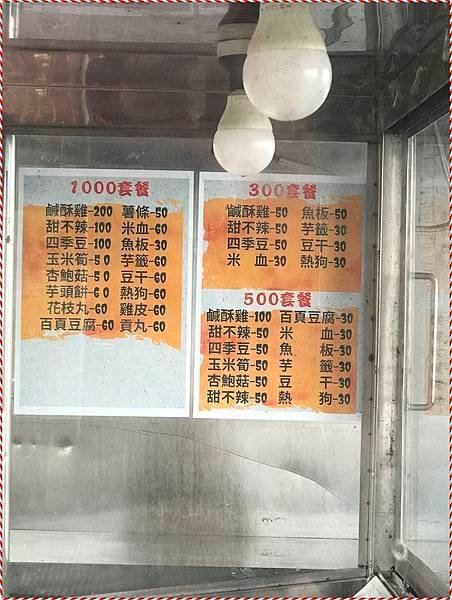 1000套餐
鹹酥雞-200 薯條-50
甜不辣-100 米血-60
四季豆-100 魚板-30
玉米筍-50 芋籤-60
杏鮑菇-50 豆干-60
芋頭餅-60 熱狗-60
花枝丸-60 雞皮-60
百頁豆腐-60 貢丸-60
300套餐
鹹酥雞-50 魚板-50
甜不辣-50 芋籤-30
四季豆-50 豆干-30
米 血-30 熱狗-30
500套餐
鹹酥雞-100 百頁豆腐-30
甜不辣-50 米 血-30
四季豆-50 魚 板-30
玉米筍-50 芋 籤-30
杏鮑菇-50 豆 干-30
甜不辣-50 熱 狗-30